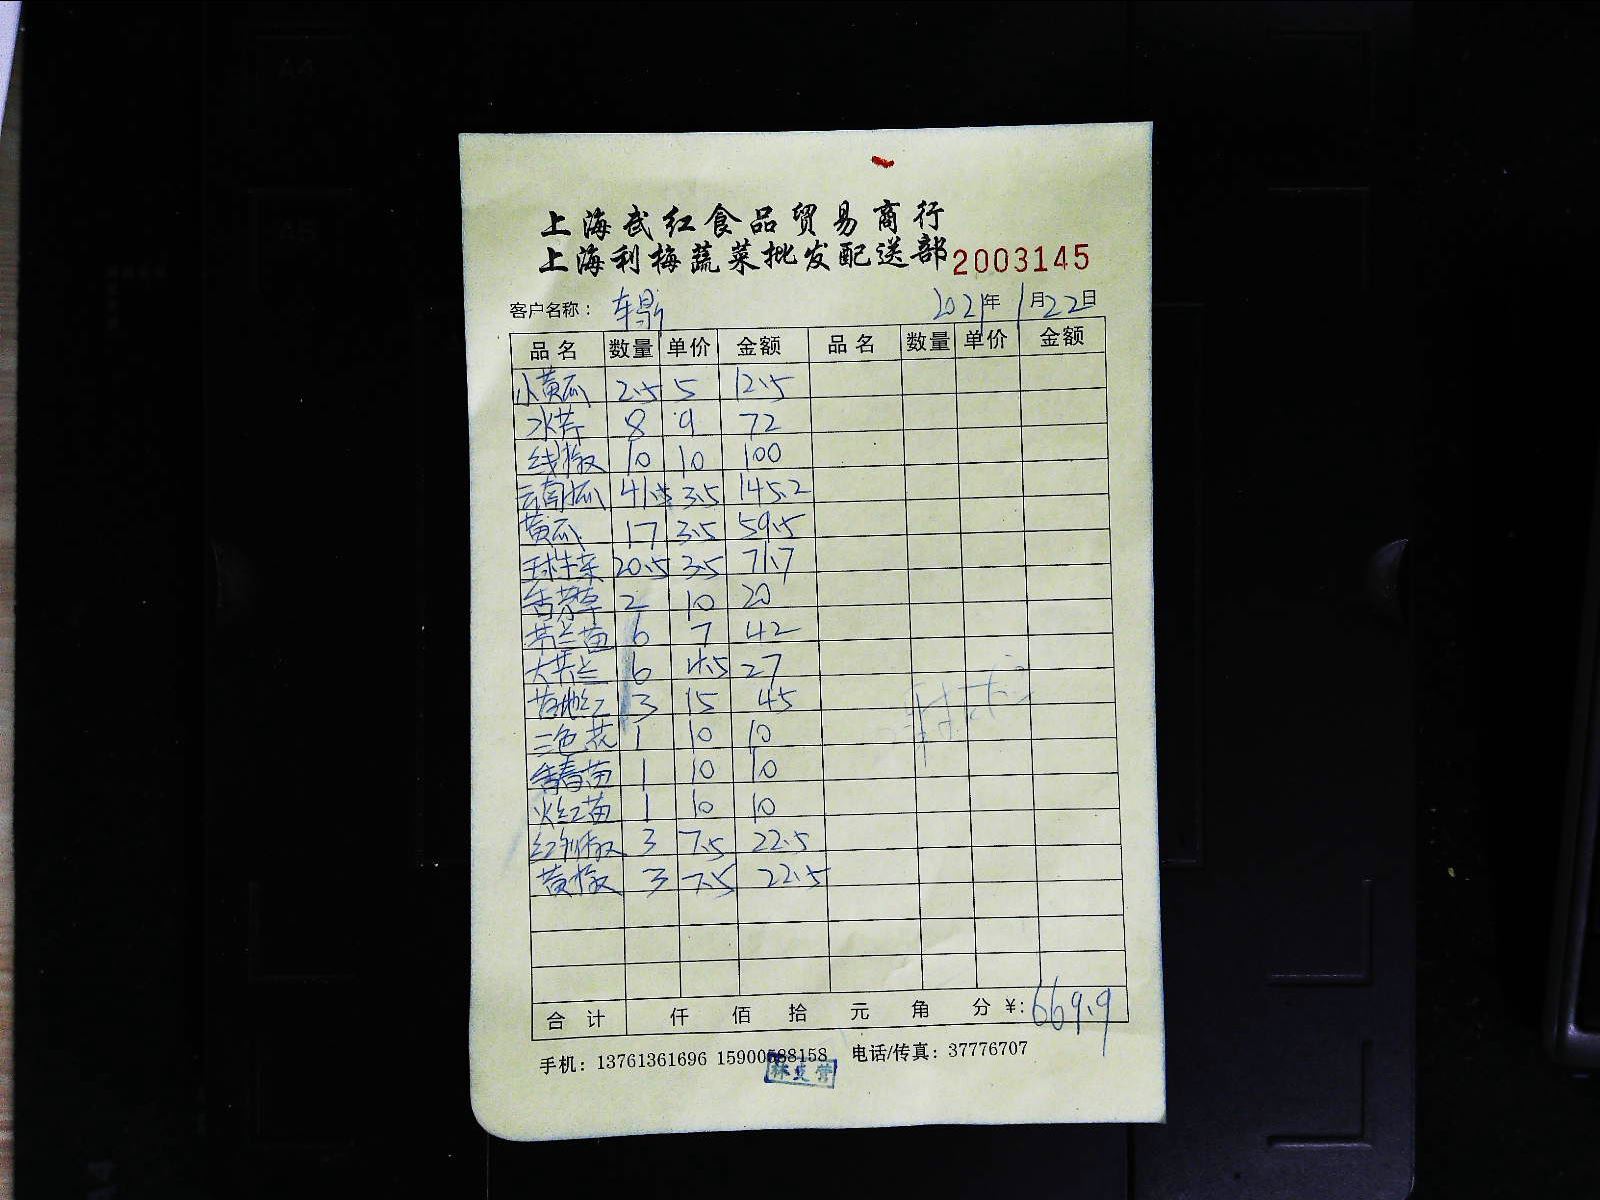 上海武红食品贸易商行
上海利梅蔬菜批发配送部 2003145
客户名称： 2021年1月22日
品名 数量 单价 金额 品名 数量 单价 金额
小黄瓜 2.5 5 12.5
水芹 8 9 72
线椒 10 10 100
云南瓜 41.5 3.5 145.2
黄瓜 17 3.5 59.5
球生菜 20.5 3.5 71.7
香茅草 2 10 20
芥兰苗 6 7 42
大芥兰 6 4.5 27
3 15 45
三色花 1 10 10
1 10 10
火红苗 1 10 10
3 7.5 22.5
黄椒 3 7.5 22.5
合计 仟 佰 拾 元 角 分 ¥: 669.9
手机：13761361696 15900588158 电话/传真：37776707